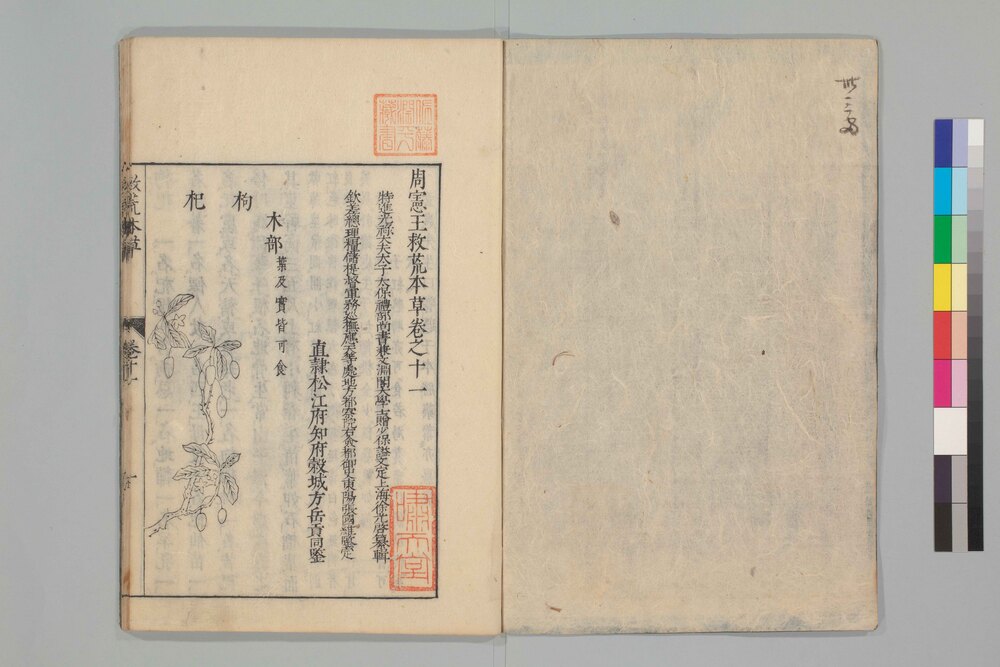 周憲王救荒本草卷之十一
特進光祿大夫太子太保禮部尚書兼文淵閣大學士贈少保謚文定上海徐光啓纂輯
欽差總理糧儲提督軍務巡撫應天等處地方都察院右僉都御史東陽張國維鑒定
直隸松江府知府穀城方岳貢同鑒
木部 葉及實皆可食
枸
杞
救荒本草
卷十一
嘯 堂